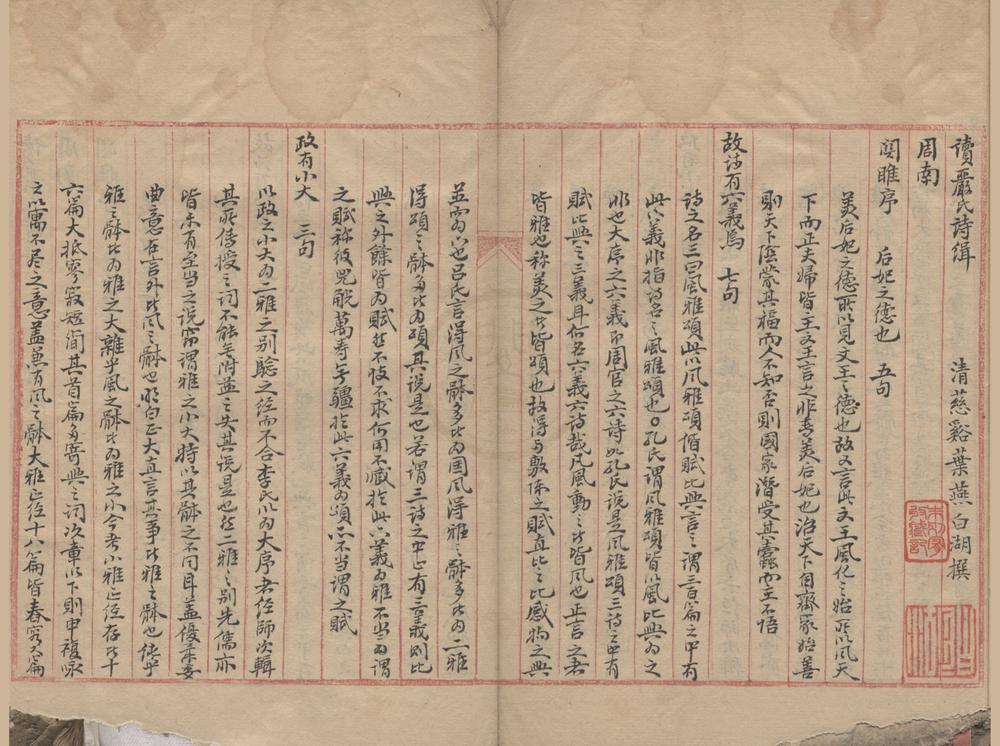 讀嚴氏詩緝　清慈谿葉燕白湖撰
周南
關雎序　后妃之德也　五句
美后妃之德所以見文王之德也故又言此文王風化之始所以風天
下而正夫婦皆主文王言之非專美后妃也治天下自齊家始善
則天下蔭蒙其福而人不知否則國家潛受其蠹而主不悟
故詩有六義焉　七句
詩之名三曰風雅頌此以風雅頌偕賦比興言之謂三百篇之中有
此六義非指詩名之風雅頌也孔氏謂風雅頌皆以風比興為之
非也大序之六義即周官之六詩如孔氏說是風雅頌三詩之中有
賦比興之三義耳何名六義六詩哉凡風動之者皆風也正言之者
皆雅也称美之者皆頌也故得与敷陳之賦直比之比感物之興
並而為六也呂氏言得風之體多者為国風得雅之體多者為二雅
得頌之體多者為頌其說是也若謂三詩之中止有三義則比
興之外餘皆為賦於不忮不求何用不臧指此六義為雅不当為謂
之賦称彼兕觥萬壽無疆指此六義為頌亦不当謂之賦
政有小大　三句
以政之小大為二雅之別驗之經而不合李氏以為大序者經師次輯
其所傳授之詞不能無附益之失其說是也然二雅之別先儒亦
皆未有至当之說竊謂雅之小大特以其體之不同耳蓋優柔委
曲意在言外者風之體也明白正大直言其事者雅之體也純乎
雅之體者為雅之大雜乎風之體者為雅之小今考小雅正經存者十
六篇大抵寥寂短簡其首篇多寄興之詞次章以下則申複咏
之以寓不尽之意蓋兼有風之體大雅正經十八篇皆舂容大篇